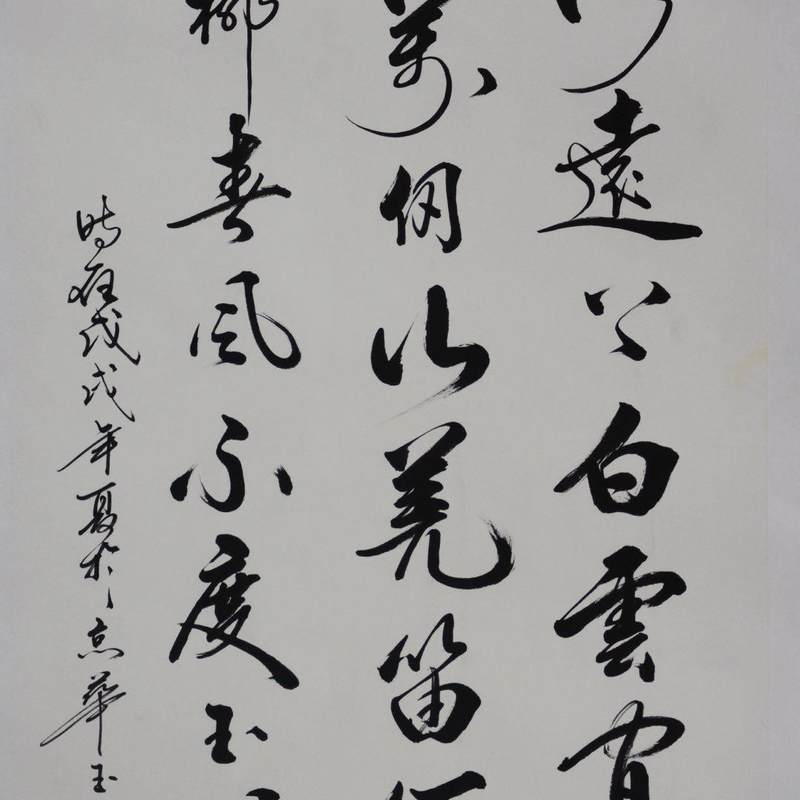 遠上白雲間
萬仞山羌笛何
柳春風不度玉
時在戊戌年夏於京華玉